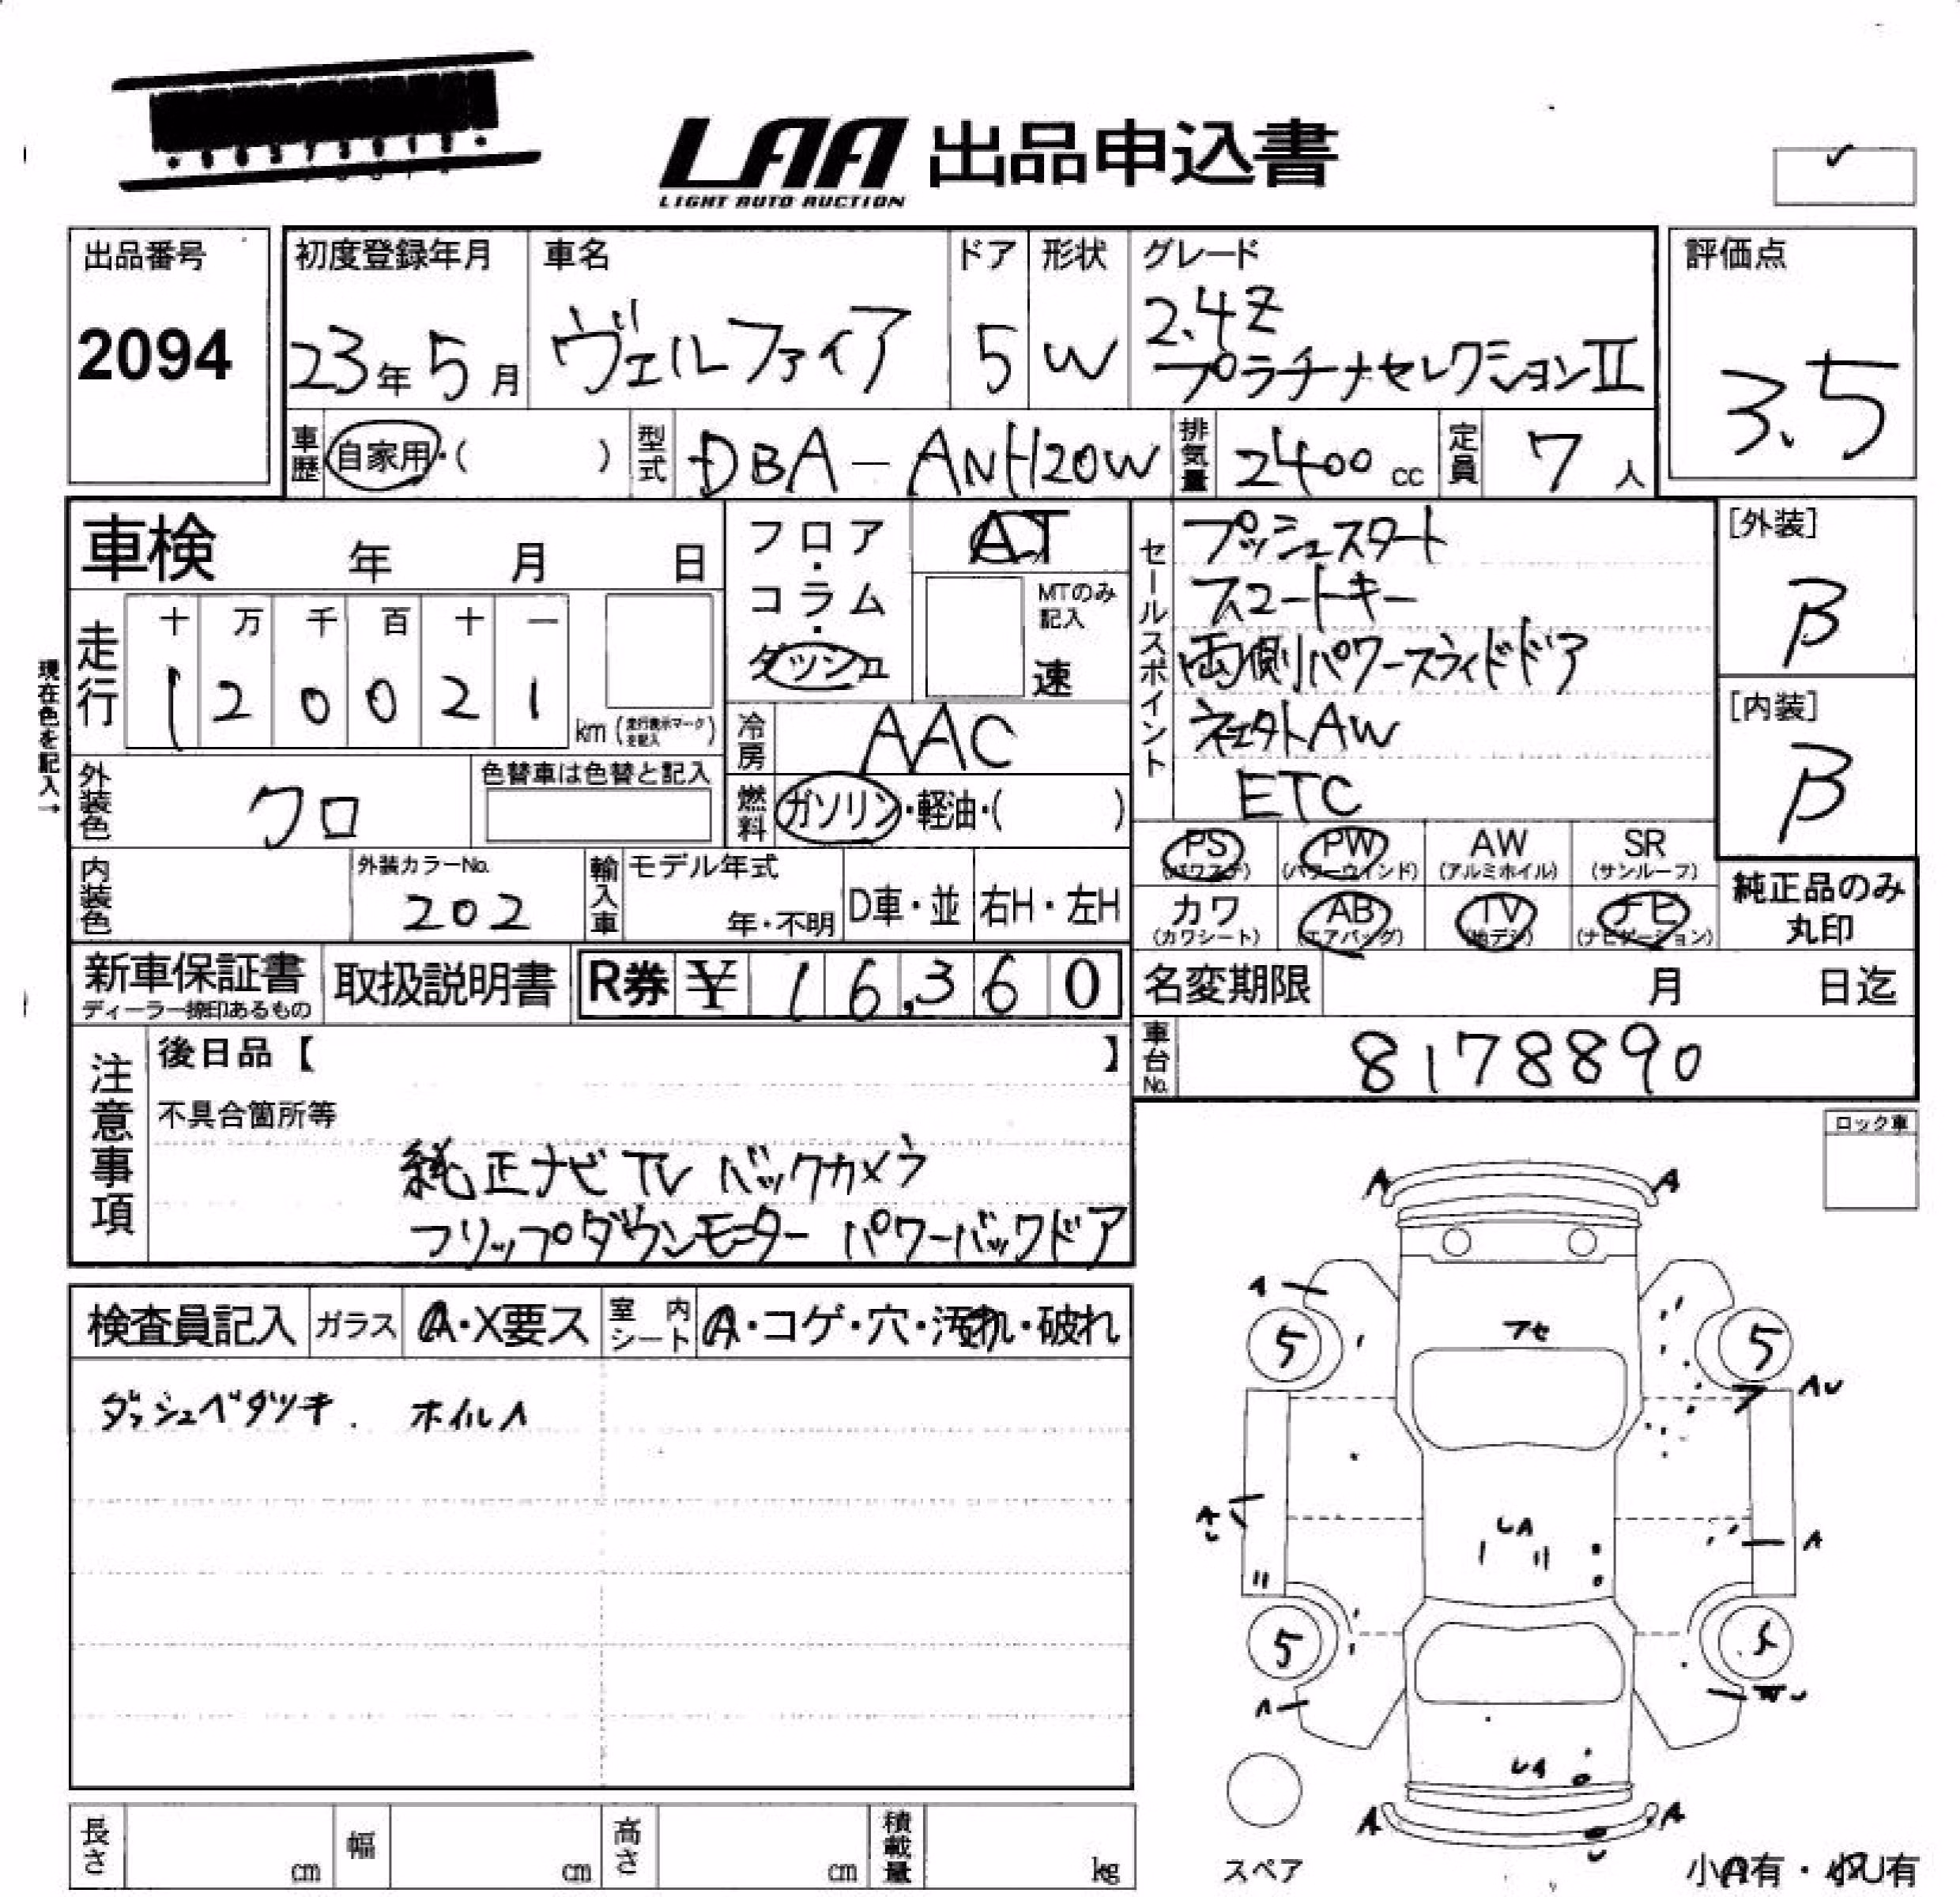 LAA 出品申込書
LIGHT AUTO AUCTION
✓
出品番号
2094
初度登録年月
23年5月
車名
ヴェルファイア
ドア
5
形状
W
グレード
2.4Z
プラチナセレクションII
評価点
3.5
車歴 自家用・( )
型式 DBA-ANH20W
排気量 2400cc
定員 7人
車検 年 月 日
走行
十 万 千 百 十 一
1 2 0 0 2 1
km (走行表示マークを記入)
現在色を記入→
フロア・コラム・ダッシュ
AT
MTのみ記入
速
冷房 AAC
燃料 ガソリン・軽油・( )
外装色 クロ
色替車は色替と記入
内装色
外装カラーNo.
202
輸入車
モデル年式
年・不明
D車・並
右H・左H
セールスポイント
プッシュスタート
スマートキー
両側パワースライドドア
ETC
[外装]
B
[内装]
B
PS PW AW SR
(パワステ) (パワーウインド) (アルミホイル) (サンルーフ)
カワ AB TV ナビ
(カワシート) (エアバッグ) (地デジ) (ナビゲーション)
純正品のみ
丸印
新車保証書
ディーラー捺印あるもの
取扱説明書
R券 ¥ 16,360
名変期限 月 日迄
車台No. 8178890
注意事項
後日品【 】
不具合箇所等
純正ナビ TV バックカメラ
フリップダウンモニター パワーバックドア
ロック車
検査員記入
ガラス A・X要ス
室内シート A・コゲ・穴・汚れ・破れ
ダッシュベタツキ. ホイルA
A A
A
フセ
5 5
AU
A
UA
A
5
A
UA
A A
スペア
小A有・小U有
長さ cm
幅 cm
高さ cm
積載量 kg